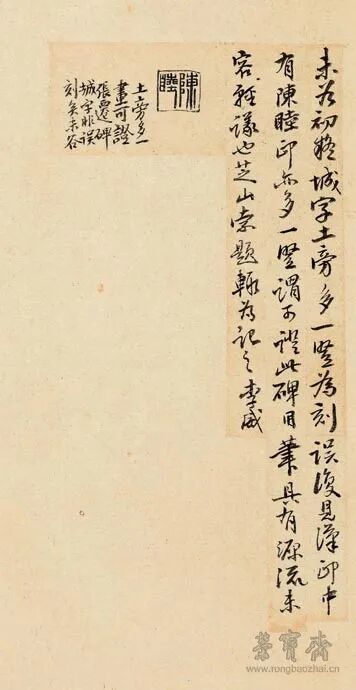 未谷初疑城字土旁多一豎為刻誤復見漢印中
有陳睦印亦多一豎謂可證此碑用筆具有源流未
容輕議也芝山索題輒為記之李威
陳睦
土旁多一
畫可證
張遷碑
城字非誤
刻矣未谷
榮寶齋
www.rongbaozhai.cn